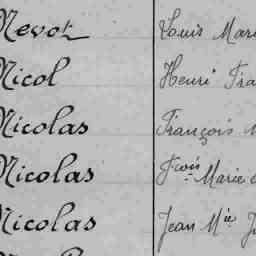 Nevot Louis Mari
Nicol Henri Fra
Nicolas François M
Nicolas Fcois Marie
Nicolas Jean Mie J